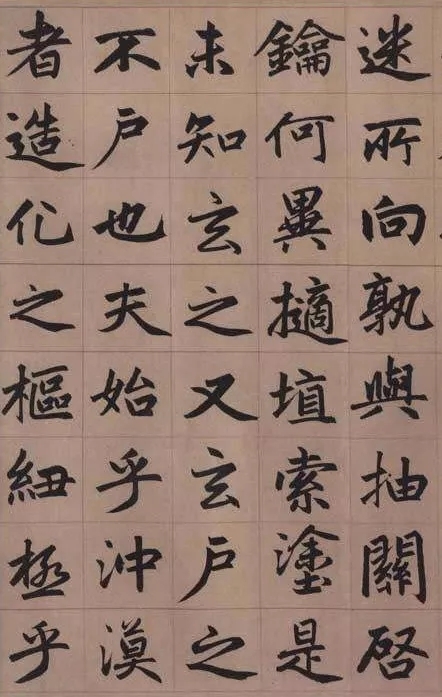 迷所向孰與抽關啓
鑰何異擿埴索塗是
未知玄之又玄戶之
不戶也夫始乎沖漠
者造化之樞紐極乎